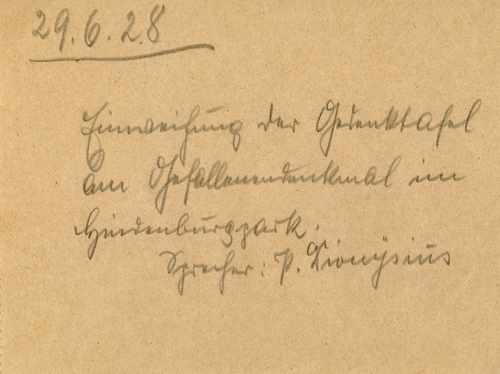 29.6.28
Einweihung der Gedenktafel
am Gefallenendenkmal im
Hindenburgpark.
Sprecher: P. Dionysius